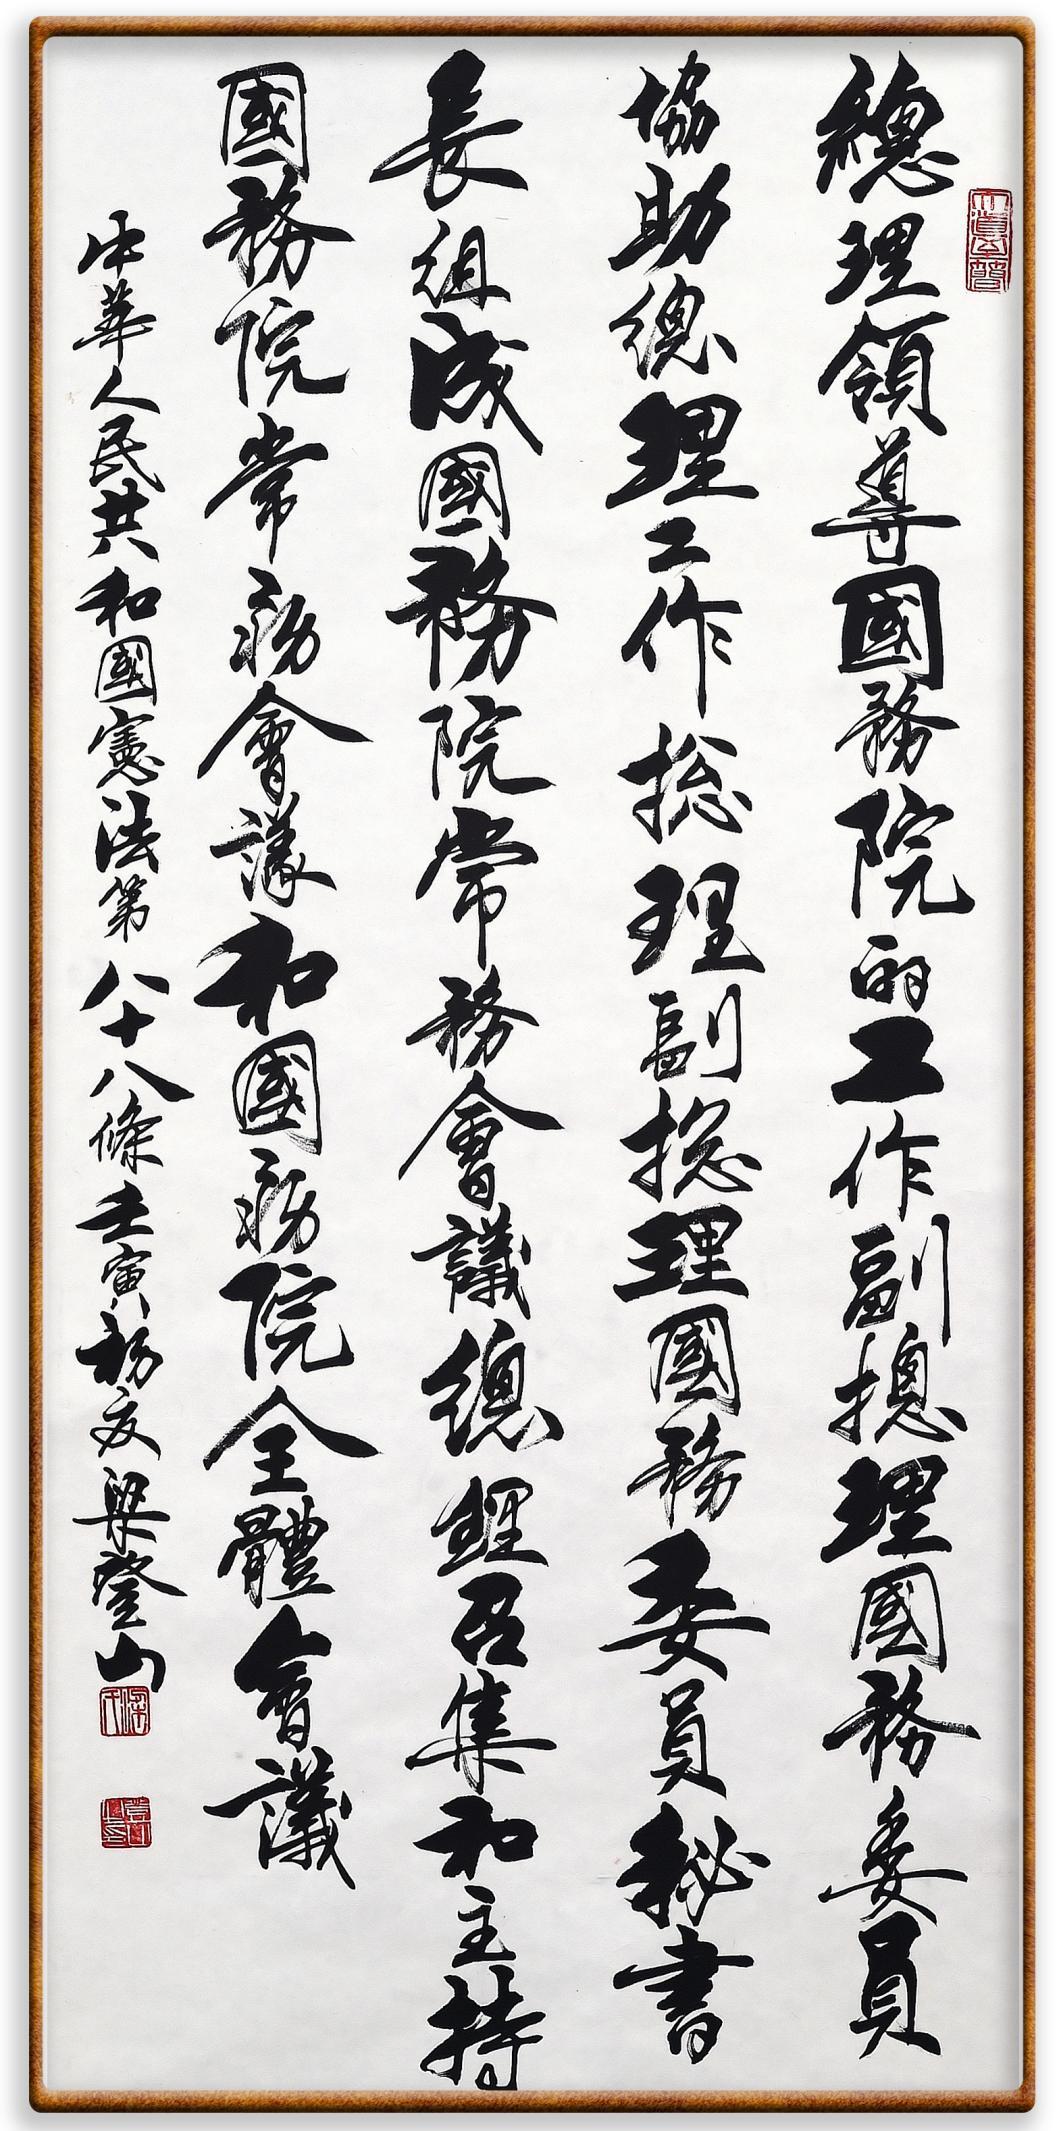 總理領導國務院的工作副摠理國務委員
協助總理工作摠理副摠理國務委員秘書
長組成國務院常務會議總理召集和主持
國務院常務會議和國務院全體會議
中華人民共和國憲法第八十八條壬寅初夏梁登山